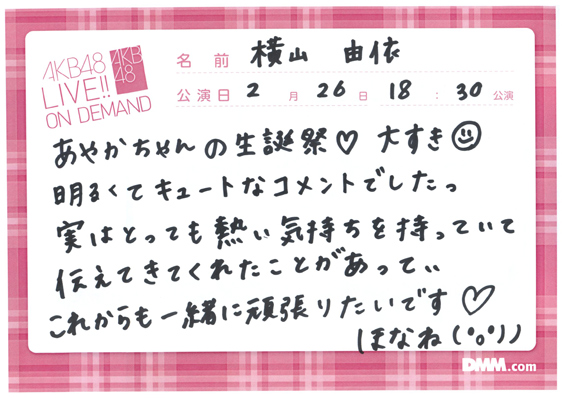 AKB48
LIVE!!
ON DEMAND
AKB
48
名前 横山 由依
公演日 2月26日 18:30公演
あやかちゃんの生誕祭♡ 大すき☺
明るくてキュートなコメントでしたっ
実はとっても熱い気持ちを持っていて
伝えてきてくれたことがあってぃ
これからも一緒に頑張りたいです♡
ほなね(°o°))
DMM.com